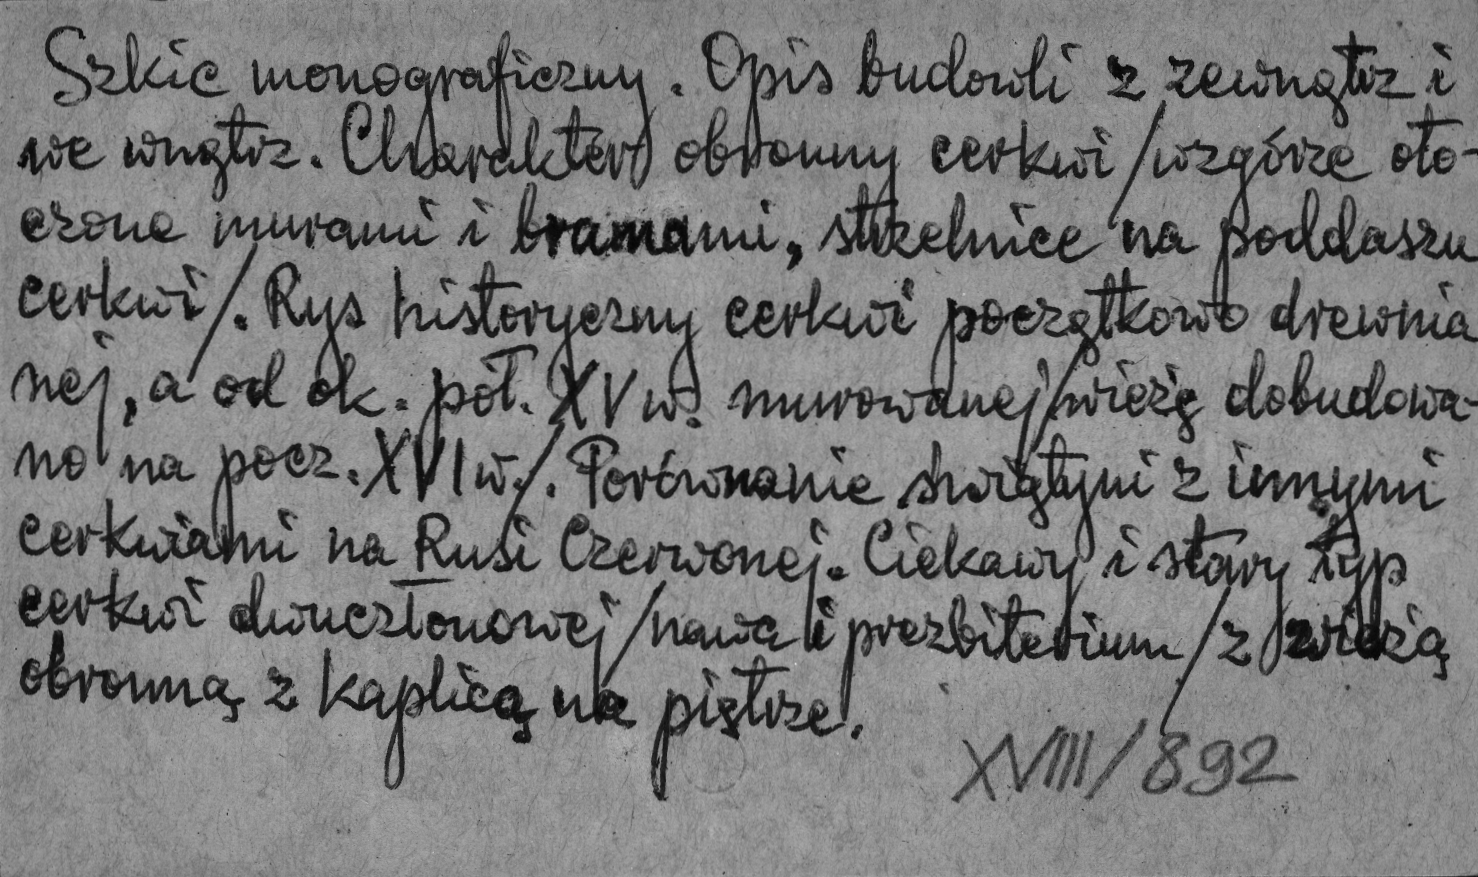 Szkic monograficzny. Opis budowli z zewnątrz i
we wnątrz. Charakter obronny cerkwi /wzgórze oto-
czone murami i bramami, strzelnice na poddaszu
cerkwi/. Rys historyczny cerkwi początkowo drewnia
nej, a od ok. poł. XV w. murowanej /wieżę dobudowa-
no na pocz. XVI w./. Porównanie świątyni z innymi
cerkwiami na Rusi Czerwonej. Ciekawy i stary typ
cerkwi dwuczłonowej /nawa i prezbiterium/ z wieżą
obronną z kaplicą na piętrze.
XVIII/892